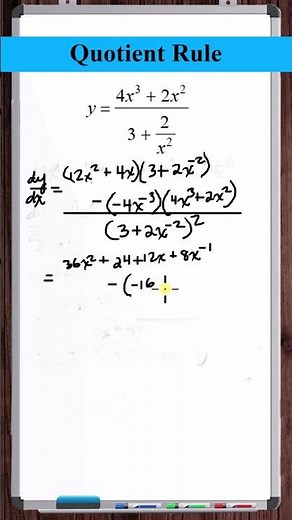 Quotient Rule
y = (4x³ + 2x²) / (3 + 2/x²)
dy/dx = (12x² + 4x)(3 + 2x⁻²)
− (−4x⁻³)(4x³ + 2x²)
(3 + 2x⁻²)²
= 36x² + 24 + 12x + 8x⁻¹
− (−16